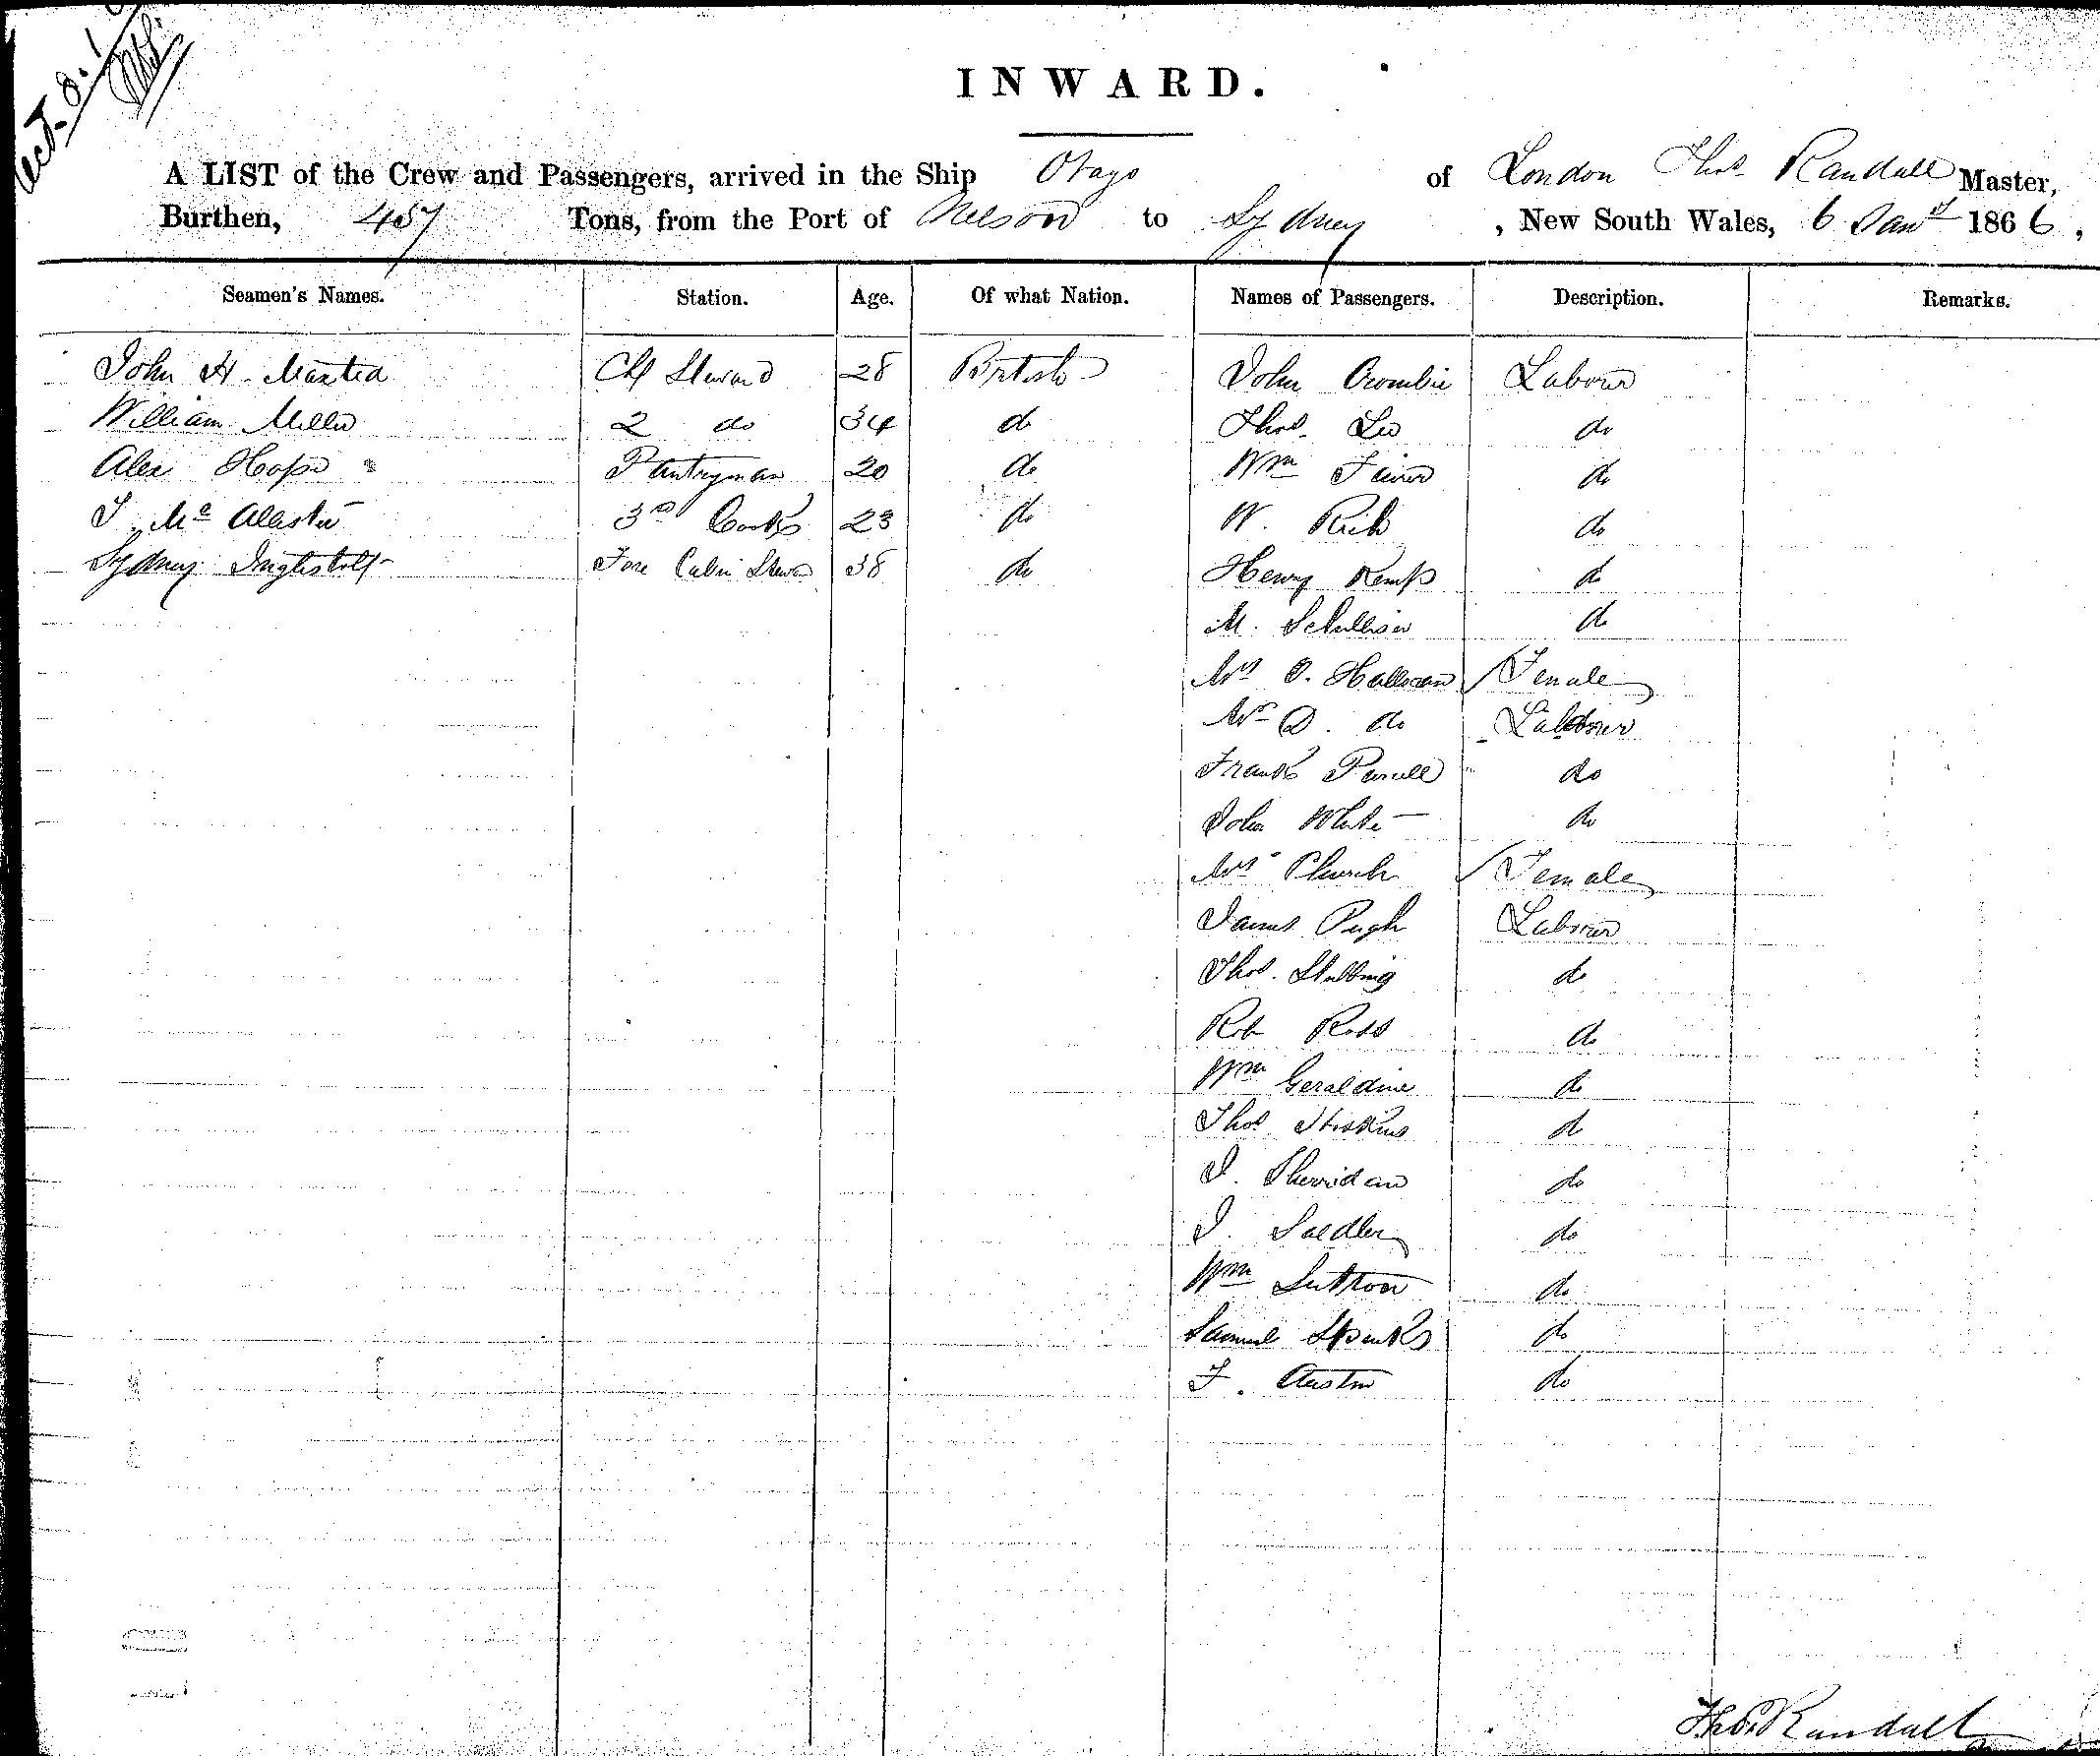 INWARD.
A LIST of the Crew and Passengers, arrived in the Ship Otago of London Thos Randall Master,
Burthen, 457 Tons, from the Port of Nelson to Sydney, New South Wales, 6 Jany 1866,
Seamen's Names. Station. Age. Of what Nation. Names of Passengers. Description. Remarks.
John H. Maxted Chf Steward 28 British John Crombie Labour
William Miller 2 do 34 do Thos. Lee do
Alex Hope Pantryman 20 do Wm do
J. Mc Allister 3rd Cook 23 do W. do
Sydney Fore Cabin Stewd 38 do Henry Kemp do
M. do
Mrs O. Halloran Female
Mr O. do Labour
Frank do
John White do
Mrs Church Female
James Pugh Labour
Thos. Stubbing do
Rob Ross do
Wm Geraldine do
Thos do
J. Sherridan do
J. Saedler do
Wm Sutton do
Samuel do
F. Austin do
Thos. Randall